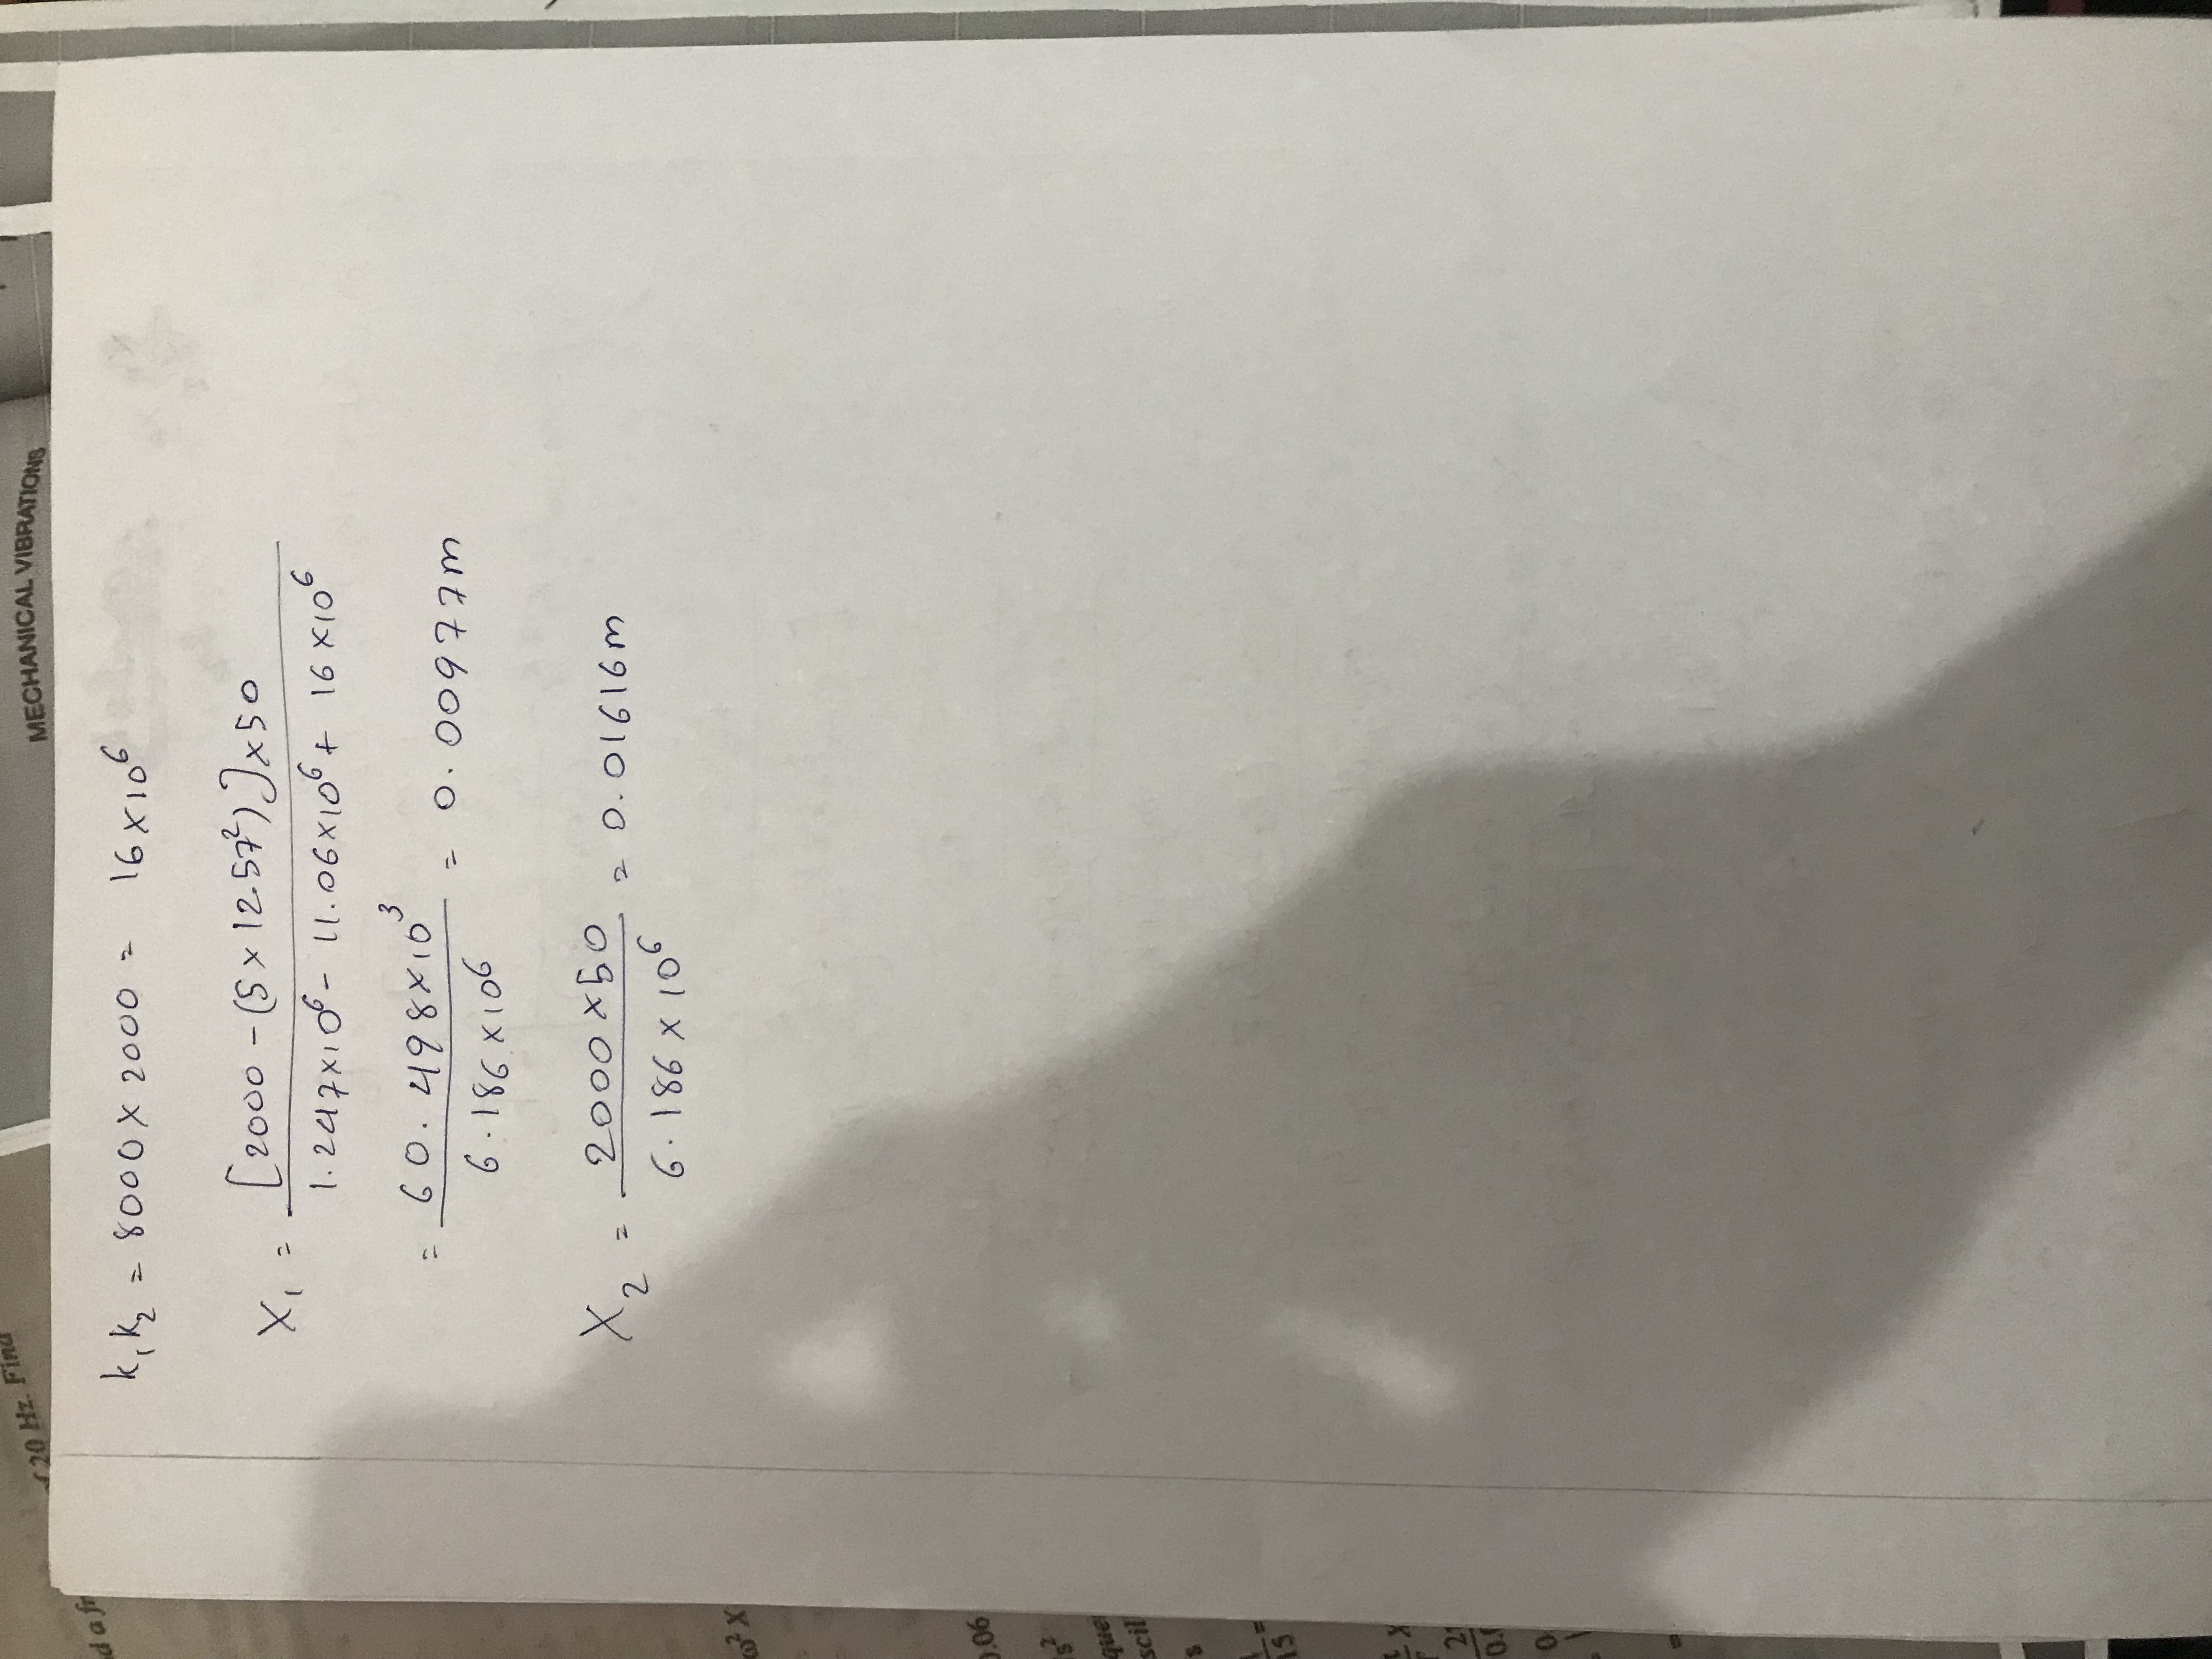 of 20 Hz. Find
MECHANICAL VIBRATIONS
d a fr
k₁k₂ = 8000 × 2000 = 16×10⁶
X₁ = [2000 - (5 × 12.57²)]×50 / 1.247×10⁶ - 11.06×10⁶ + 16×10⁶
= 60.498×10³ / 6.186×10⁶ = 0.00977m
X₂ = 2000×50 / 6.186×10⁶ = 0.01616m
ω² X
0.06
s²
que
scil
s
15
0